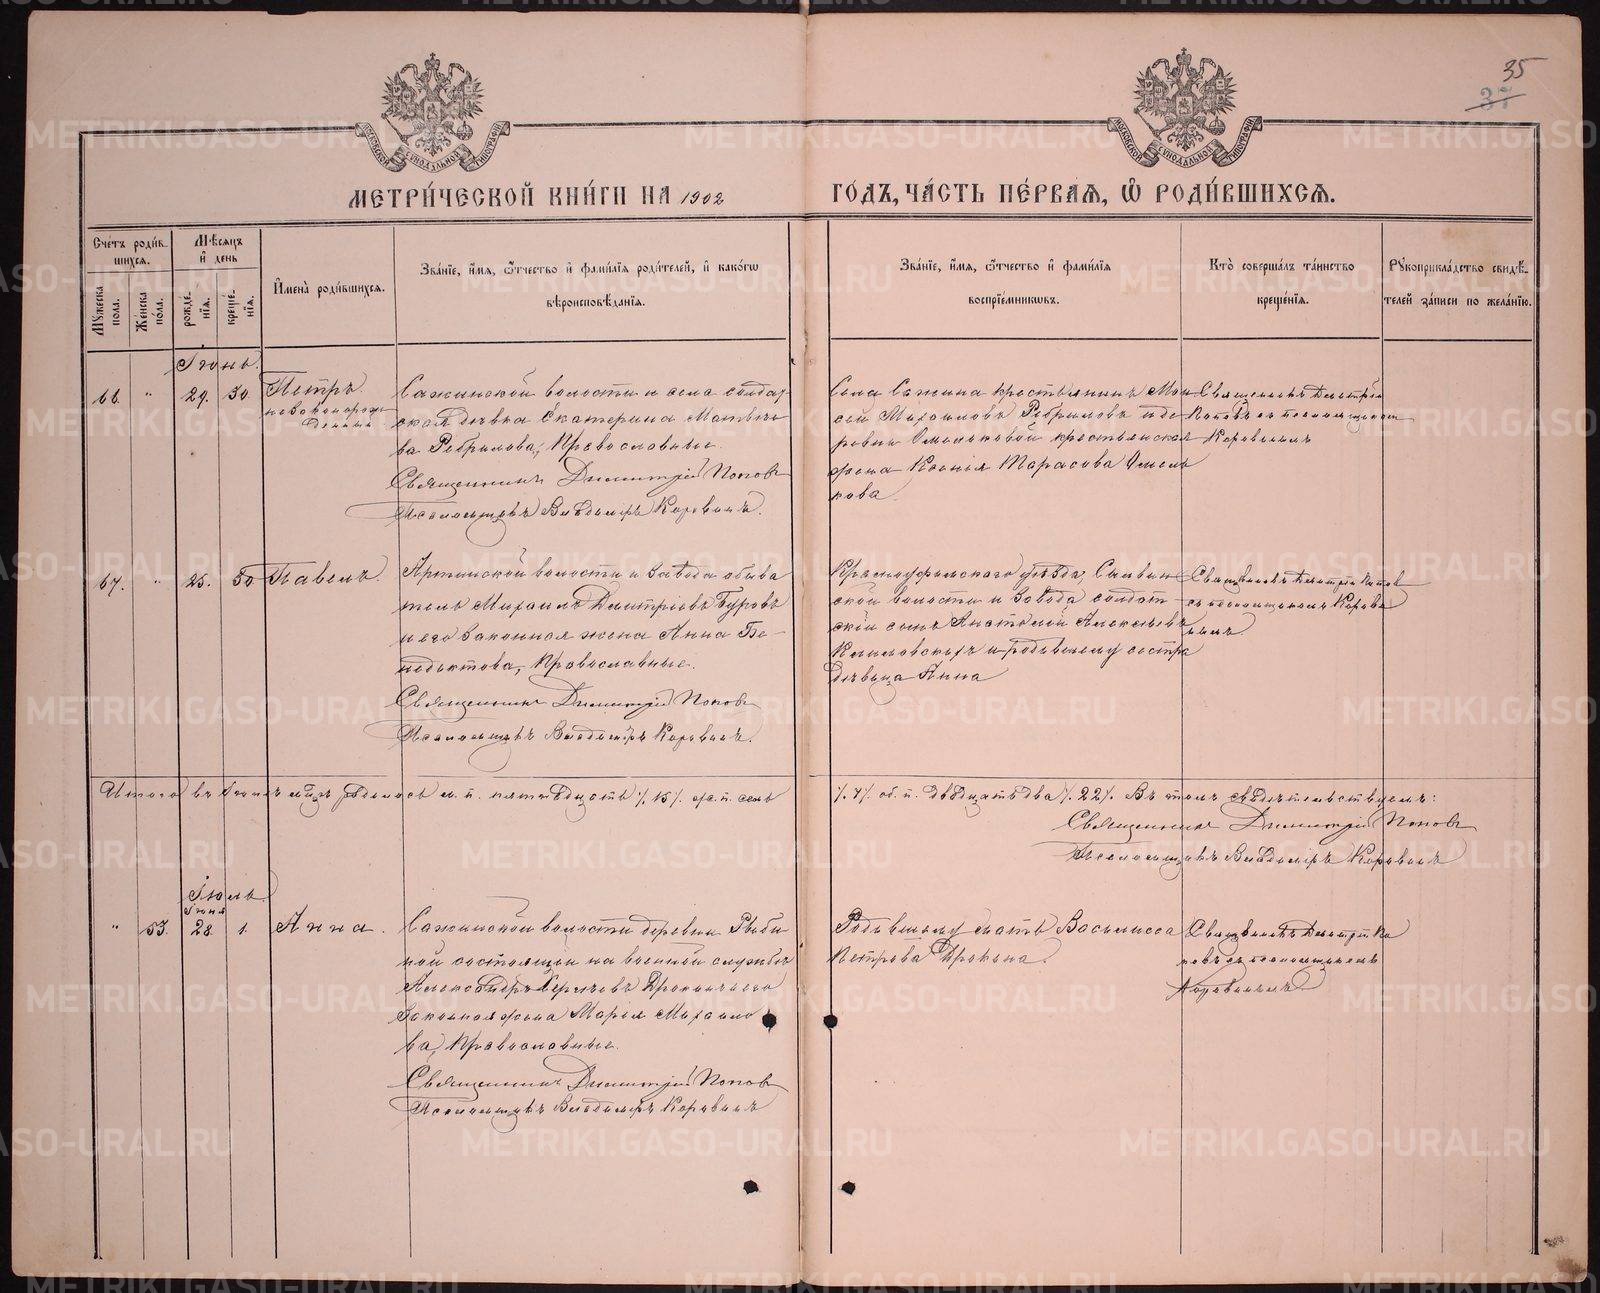 35
37
МОСКОВСКОЙ СѴНОДАЛЬНОЙ ТИПОГРАФІИ
МОСКОВСКОЙ СѴНОДАЛЬНОЙ ТИПОГРАФІИ
МЕТРИ́ЧЕСКОЙ КНИ́ГИ НА 1902
ГО́ДЪ, ЧА́СТЬ ПЕ́РВАѦ, Ѿ РОДИ́ВШИХСѦ.
Сче́тъ роди́в-
шихсѧ.
Мꙋ́жеска пола.
Же́нска по́ла.
Мѣ́сѧцъ
и҆ день
рожде́-
нїѧ.
креще́-
нїѧ.
И҆мена̀ роди́вшихсѧ.
Зва́нїе, и҆́мѧ, ѻ҆́тчество и҆ фами́лїѧ роди́телей, и҆ како́гѡ
вѣроисповѣ́данїѧ.
Зва́нїе, и҆́мѧ, ѻ҆́тчество и҆ фами́лїѧ
воспрїе́мникѡвъ.
Кто̀ соверша́лъ та́инство
креще́нїѧ.
Рꙋкоприкла́дство свидѣ́-
телей за́писи по жела́нїю.
Іюнь.
66. " 29. 30. Петръ
незаконорож-
денный
Сажинской волости и села солдат-
ская дѣвка Екатерина Матвѣе-
ва Ребрилова, Православные.
Священникъ Димитрій Поповъ
Псаломщикъ Владиміръ Коровинъ.
Села Сажина крестьянинъ Мои-
сей Михаиловъ Ребриловъ и де-
ревни Омельковой крестьянская
жена Ксенія Тарасова Омель-
кова.
Священникъ Димитрій
Поповъ съ псаломщикомъ
Коровинымъ
67. " 25. 30. Павелъ.
Артинской волости и завода обыва-
тель Михаилъ Димитріевъ Буровъ
и его законная жена Анна Бе-
недиктова, Православные.
Священникъ Димитрій Поповъ
Псаломщикъ Владиміръ Коровинъ.
Красноуфимского уѣзда, Сылвин-
ской волости и завода солдат-
скій сынъ Анатолій Алексѣевъ
и родившему сестра
дѣвица Анна
Священникъ Димитрій Поповъ
съ псаломщикомъ Корови-
нымъ.
Итого въ Іюнѣ мцѣ родилось м. п. пятнадцать /.15/. ж. п. семь
/.7/. об. п. двадцать два /.22/. Въ томъ свидѣтельствуемъ:
Священникъ Димитрій Поповъ
Псаломщикъ Владиміръ Коровинъ
Іюль
Іюня
" 53. 28. 1. Анна.
Сажинской волости деревни Рыби-
ной состоящій на военной службѣ
Александръ Сергѣевъ Дрокинъ и его
законная жена Марія Михаило-
ва, Православные.
Священникъ Димитрій Поповъ
Псаломщикъ Владиміръ Коровинъ
Родившему мать Василисса
Петрова Дрокина.
Священникъ Димитрій По-
повъ съ псаломщикомъ
Коровинымъ.
METRIKI.GASO-URAL.RU